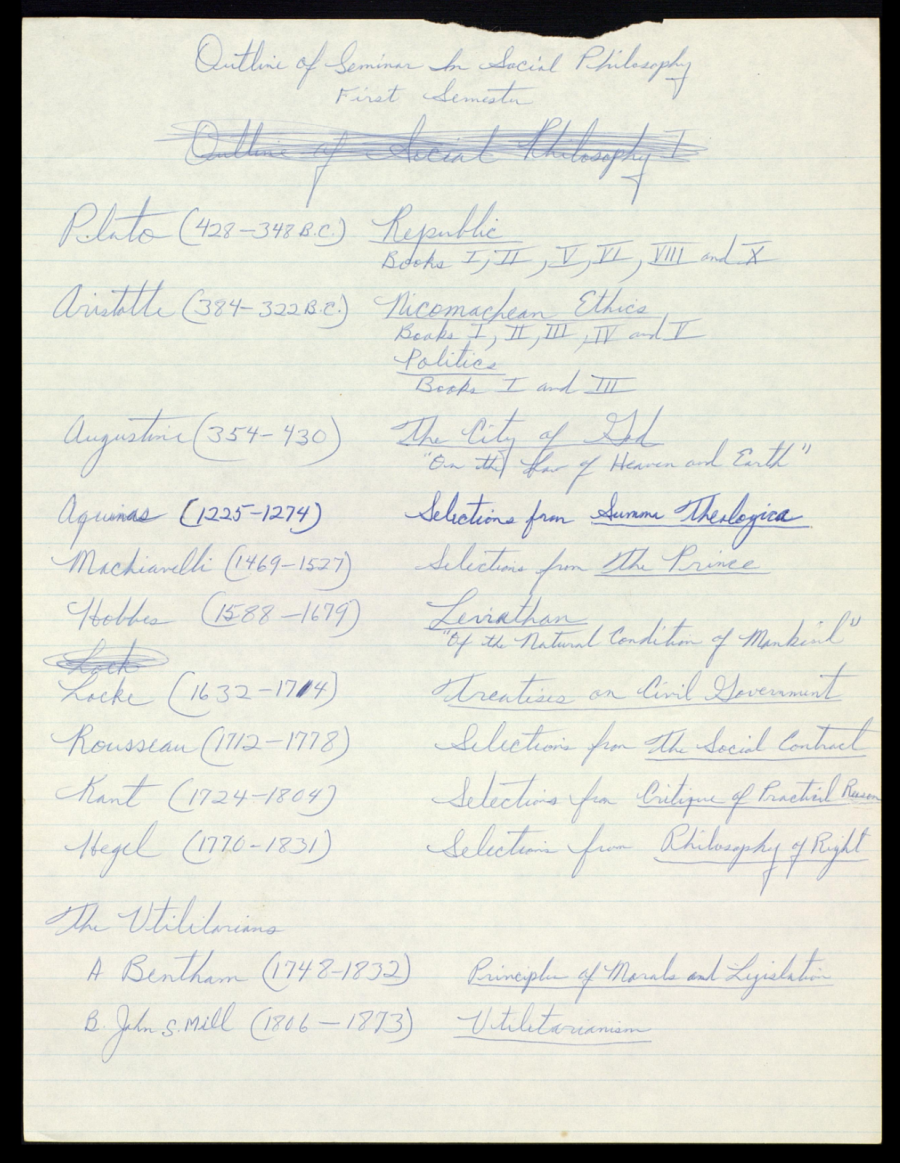 Outline of Seminar In Social Philosophy
First Semester
Outline of Social Philosophy I
Plato (428–348 B.C.) Republic
Books I, II, V, VI, VIII and X
Aristotle (384–322 B.C.) Nicomachean Ethics
Books I, II, III, IV and V
Politics
Books I and III
Augustine (354–430) The City of God
"On the law of Heaven and Earth"
Aquinas (1225–1274) Selections from Summa Theologica
Machiavelli (1469–1527) Selections from The Prince
Hobbes (1588–1679) Leviathan
"Of the Natural Condition of Mankind"
Lock
Locke (1632–1714) Treatises on Civil Government
Rousseau (1712–1778) Selections from The Social Contract
Kant (1724–1804) Selections from Critique of Practical Reason
Hegel (1770–1831) Selections from Philosophy of Right
The Utilitarians
A Bentham (1748–1832) Principles of Morals and Legislation
B. John S. Mill (1806–1873) Utilitarianism